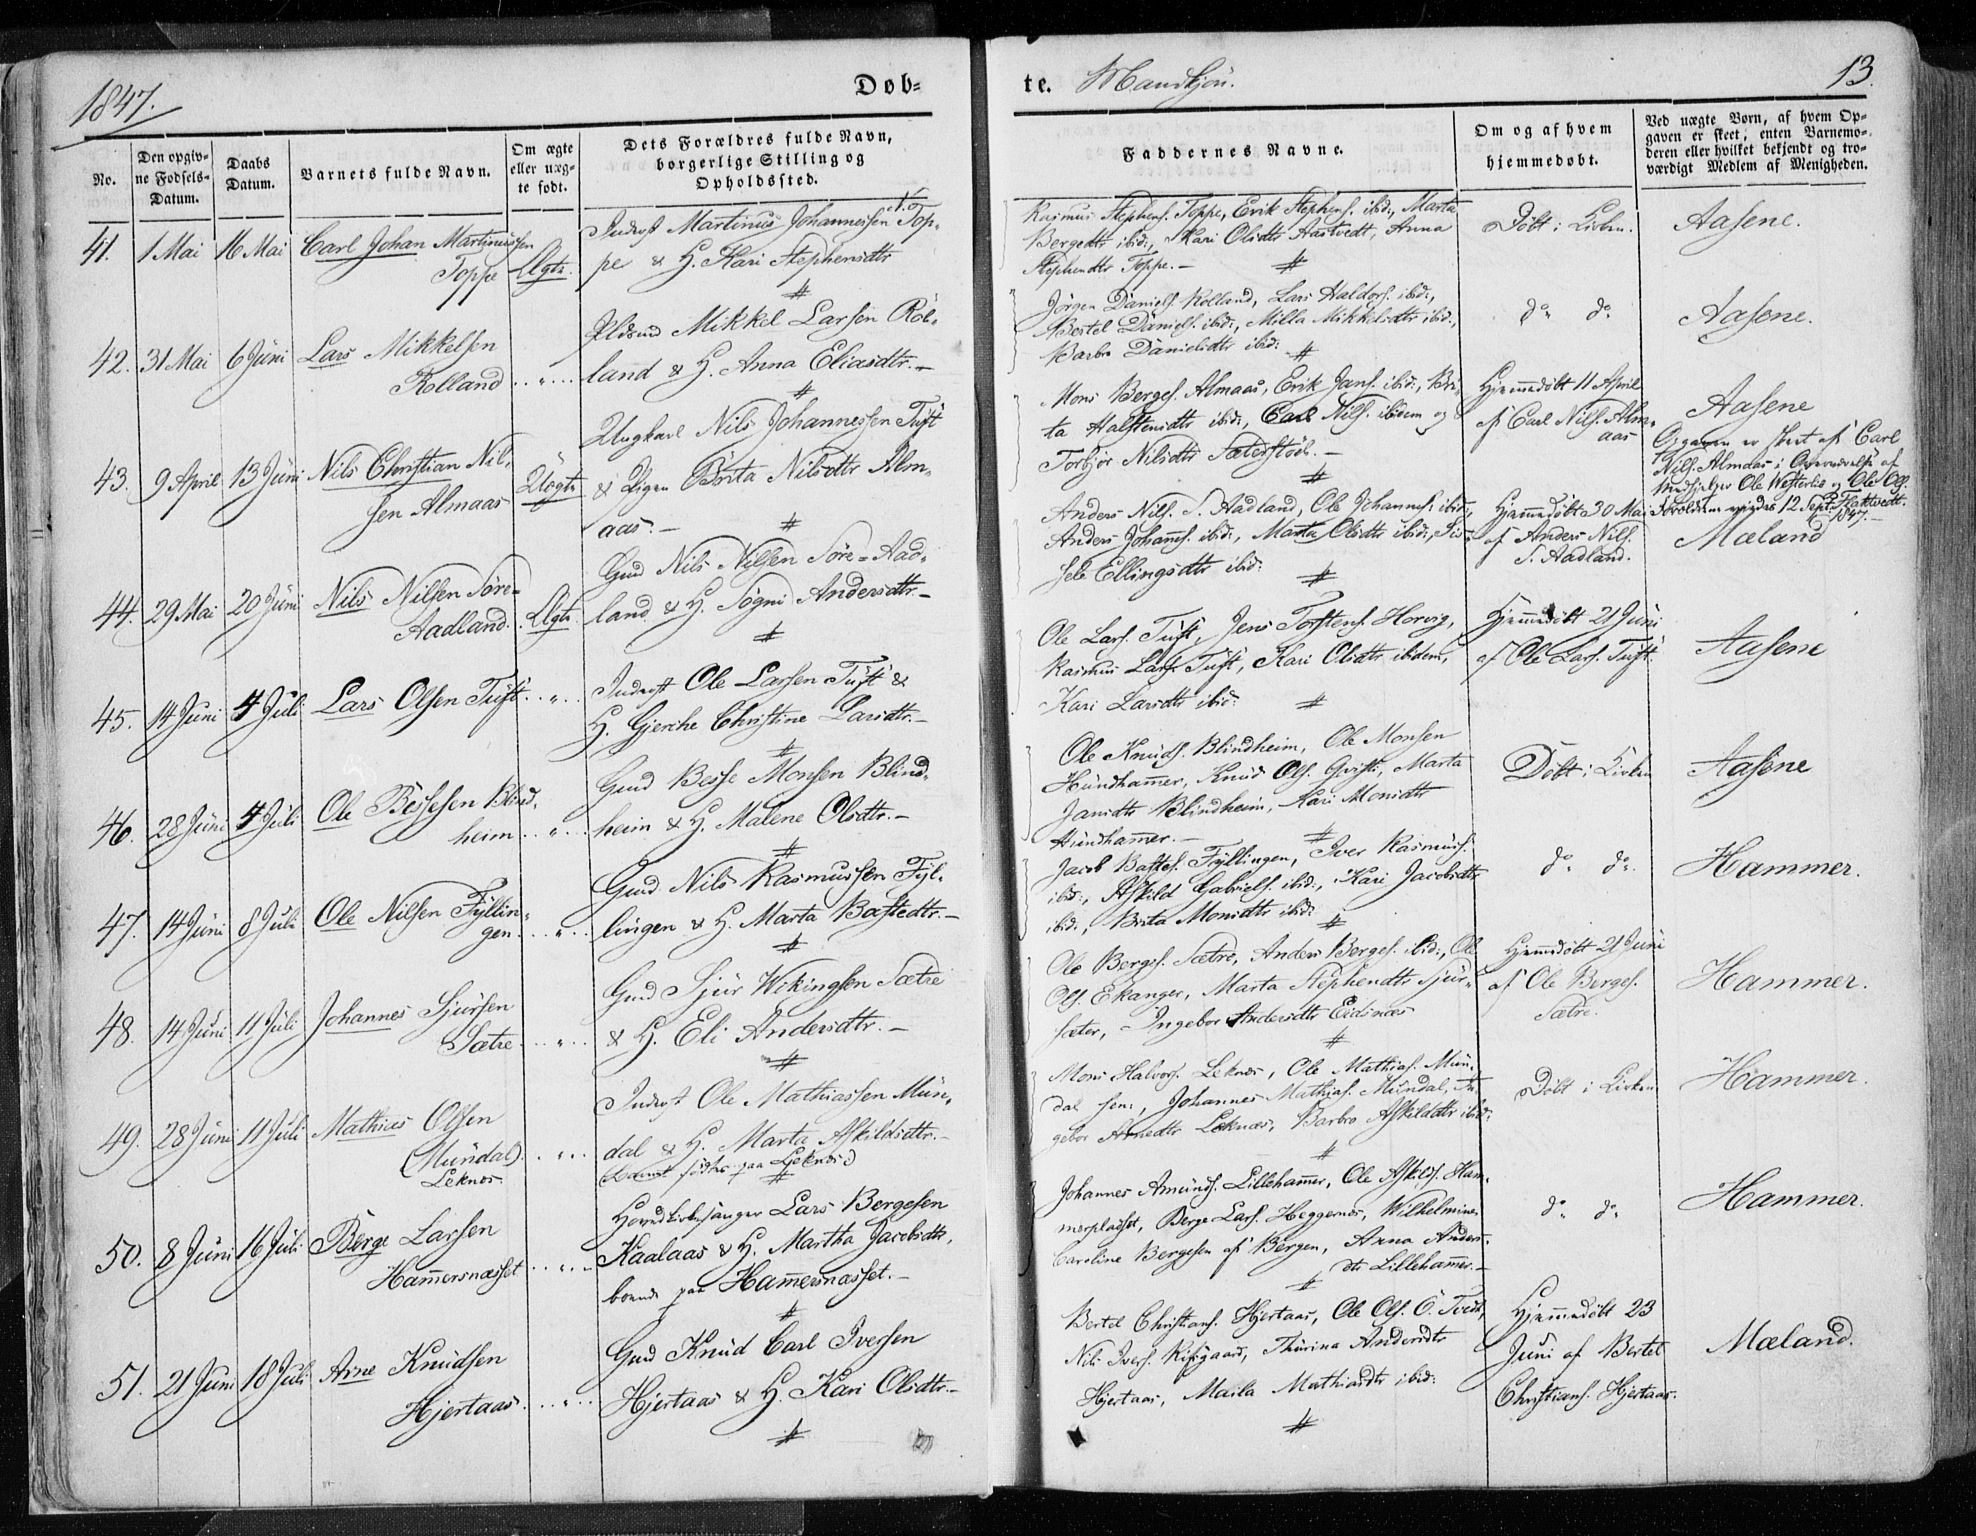 1847.
Døb=
te. Mandkjøn.
13.
No.
Den opgiv=
ne Fødsels=
Datum.
Daabs
Datum.
Barnets fulde Navn.
Om ægte
eller uæg=
te født.
Dets Forældres fulde Navn,
borgerlige Stilling og
Opholdssted.
Faddernes Navne.
Om og af hvem
hjemmedøbt.
Ved uægte Børn, af hvem Op=
gaven er skeet, enten Barnemo=
deren eller hvilket bekjendt og tro=
værdigt Medlem af Menigheden.
41. 1 Mai 16 Mai Carl Johan Martinussen
Toppe Ægte
Inderst Martinus Johannessen Top=
pe & H. Kari Stephensdtr
Rasmus Stephens. Toppe, Erik Stephens. ibid:, Marta
Bergedtr ibid:, Kari Olsdtr Hastvedt, Anna
Stephendtr Toppe.—
Døbt i Kirken.
Aasene.
42. 31 Mai 6 Juni Lars Mikkelsen
Rolland „
Mikkel Larsen Rol=
land & H. Anna Eliasdtr.—
Jørgen Daniels. Rolland, Lars Haldors. ibid:,
Bertel Daniels. ibid:, Milla Mikkelsdtr ibid:,
Barbro Danielsdtr ibid:
do do
Aasene.
43. 9 April 13 Juni Nils Christian Nil=
sen Almaas Uægte
Ungkarl Nils Johannessen Tuft
& Pigen Brita Nilsdtr Alm=
aas.—
Mons Berges. Almaas, Erik Jans. ibid:, Bri=
ta Halstensdtr ibid:, Carl Nils. ibidem og
Torbjør Nilsdtr Sæterstøl.—
Hjemmedøbt 11 April
af Carl Nils. Alm=
aas
Aasene
Opgaven er skeet af Carl
Nils. Almaas i Overværelse af
Medhjelper Ole Westerlid og Ole Ols.
12 Sept. 1847.—
44. 29 Mai 20 Juni Nils Nilsen Søre=
Aadland. Ægte
Gmd Nils Nilsen Søre=Aad=
land & H. Søgni Andersdtr—
Anders Nils. S. Aadland, Ole Johannes. ibid:,
Anders Johanns. ibid:, Marta Olsdtr ibid:, Sis=
sele Ellingsdtr ibid:
Hjemmedøbt 30 Mai
af Anders Nils.
S. Aadland.
Mæland
45. 14 Juni 4 Juli Lars Olsen Tuft „
Inderst Ole Larsen Tuft &
H. Gjerche Christine Larsdtr.—
Ole Lars. Tuft, Jens Torstens. Horvig,
Rasmus Lars. Tuft, Kari Olsdtr ibidem,
Kari Larsdtr ibid:
Hjemmedøbt 21 Juni
af Ole Lars. Tuft.
Aasene
46. 28 Juni 4 Juli Ole Bessesen Blind=
heim „
Gmd Besse Monsen Blind=
heim & H. Malene Olsdtr.—
Ole Knuds. Blindheim, Ole Monsen
Hundhamer, Knud Ols. Qvist, Marta
Jansdtr Blindheim, Kari Monsdtr
Hundhamer.—
Døbt i Kirken
Aasene
47. 14 Juni 8 Juli Ole Nilsen Fyllin=
gen. „
Gmd. Nils Rasmussen Fyl=
lingen & H. Marta Bastedtr.—
Jacob Bastes. Fyllingen, Iver Rasmus.
ibid:, Askild Gabriels. ibid:, Kari Jacobsdtr
ibid:, Brita Monsdtr ibid:
do do.
Hammer.
48. 14 Juni 11 Juli Johannes Sjursen
Sætre „
Gmd Sjur Wikingsen Sætre
& H. Eli Andersdtr.—
Ole Berges. Sætre, Anders Berges. ibid:, Ole
Ols. Ekanger, Marta Stephendtr Sjur=
sæter, Ingebor Andersdtr Eidsnæs
Hjemmedøbt 21 Juni
af Ole Berges.
Sætre.
Hammer.
49. 28 Juni 11 Juli Mathias Olsen
(Mundal)
Leknes. „
Inderst Ole Mathiassen Mun=
dal & H. Marta Askildsdtr.—
(Barnet født paa Leknes.)
Mons Halvors. Leknes, Ole Mathias. Mun=
dal sen:, Johannes Mathias. Mundal, In=
gebor Arnedtr Leknæs, Barbro Askildsdtr ibid:
Døbt i Kirken
Hammer.
50. 8 Juni 16 Juli Berge Larsen
Hamersnæsset „
Hovedkirkesanger Lars Bergesen
Kaalaas & H. Martha Jacobsdtr,
boende paa Hamersnæsset.—
Johannes Amunds. Lillehamer, Ole Askilds. Ham=
merpladset, Berge Lars. Heggernes, Wilhelmine
Caroline Bergesen af Bergen, Anna Anders=
dtr Lillehamer.—
do do
Hammer.
51. 21 Juni 18 Juli Arne Knudsen
Hjertaas „
Gmd Knud Carl Iversen
Hjertaas & H. Kari Olsdtr.—
Bertel Christians. Hjertaas, Ole Ols. Ö. Tvedt,
Nils Ivers. Risøgaard, Thurina Andersdtr
Hjertaas, Maila Mathiasdtr ibid:
Hjemmedøbt 23
Juni af Bertel
Christians. Hjertaas.
Mæland.